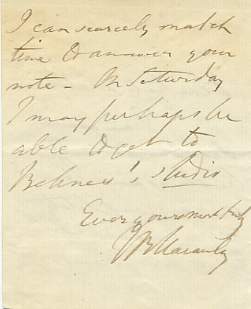 I can scarcely snatch
time to answer your
note - On Saturday
I may perhaps be
able to get to
Behnes's studio
Ever yours most truly
T B Macaulay